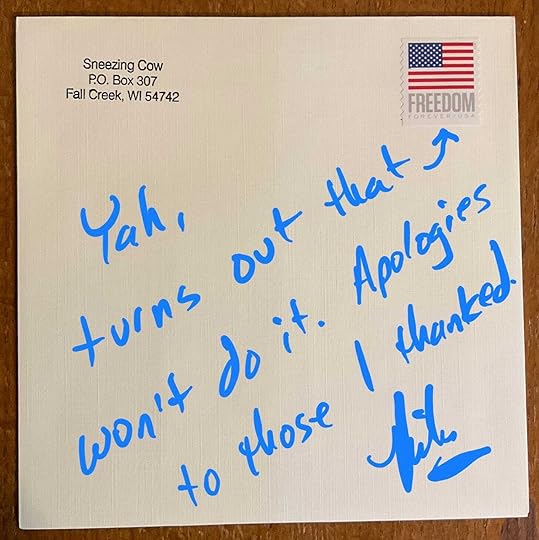 Sneezing Cow
P.O. Box 307
Fall Creek, WI 54742
FREEDOM
FOREVER/USA
Yah,
turns out that
won't do it. Apologies
to those I thanked.
Mike